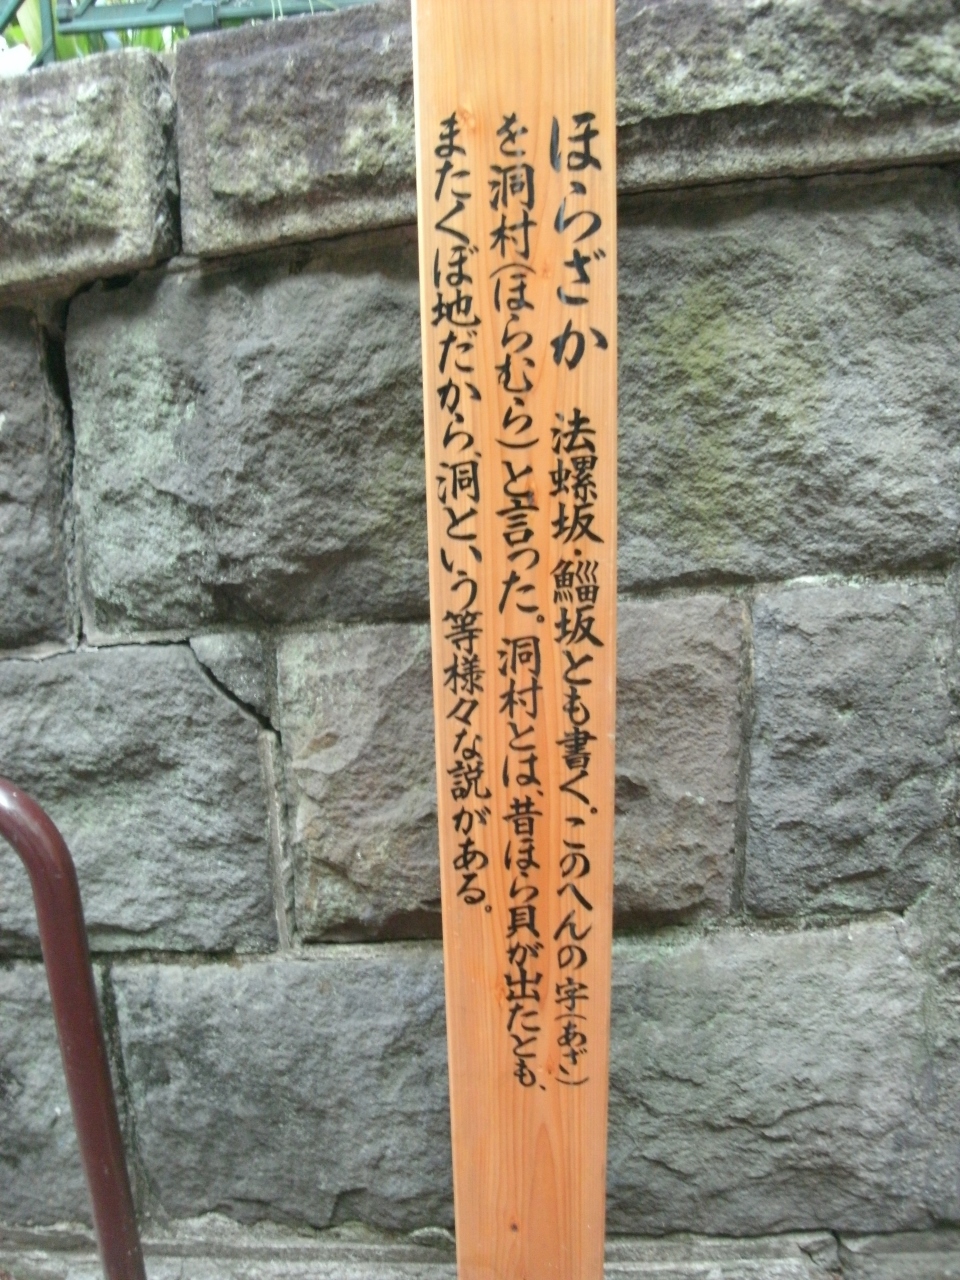 ほらざか 法螺坂・鯔坂とも書く。このへんの字(あざ)
を洞村(ほらむら)と言った。洞村とは、昔ほら貝が出たとも、
またくぼ地だから、洞という等様々な説がある。